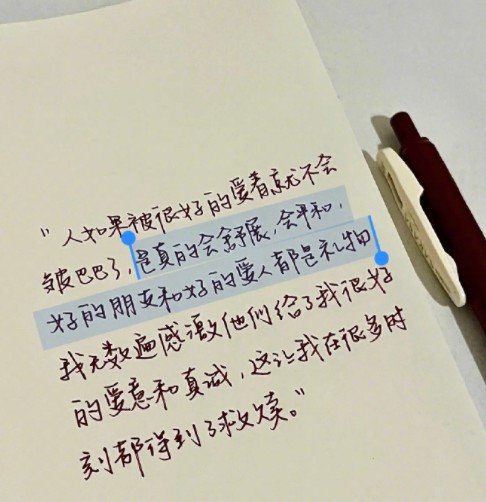 "人如果被很好的爱着就不会
皱巴巴了,是真的会舒展,会平和,
好的朋友和好的爱人都是礼物
我无数遍感激他们给了我很好
的爱意和真诚,这让我在很多时
刻都得到了救赎。"